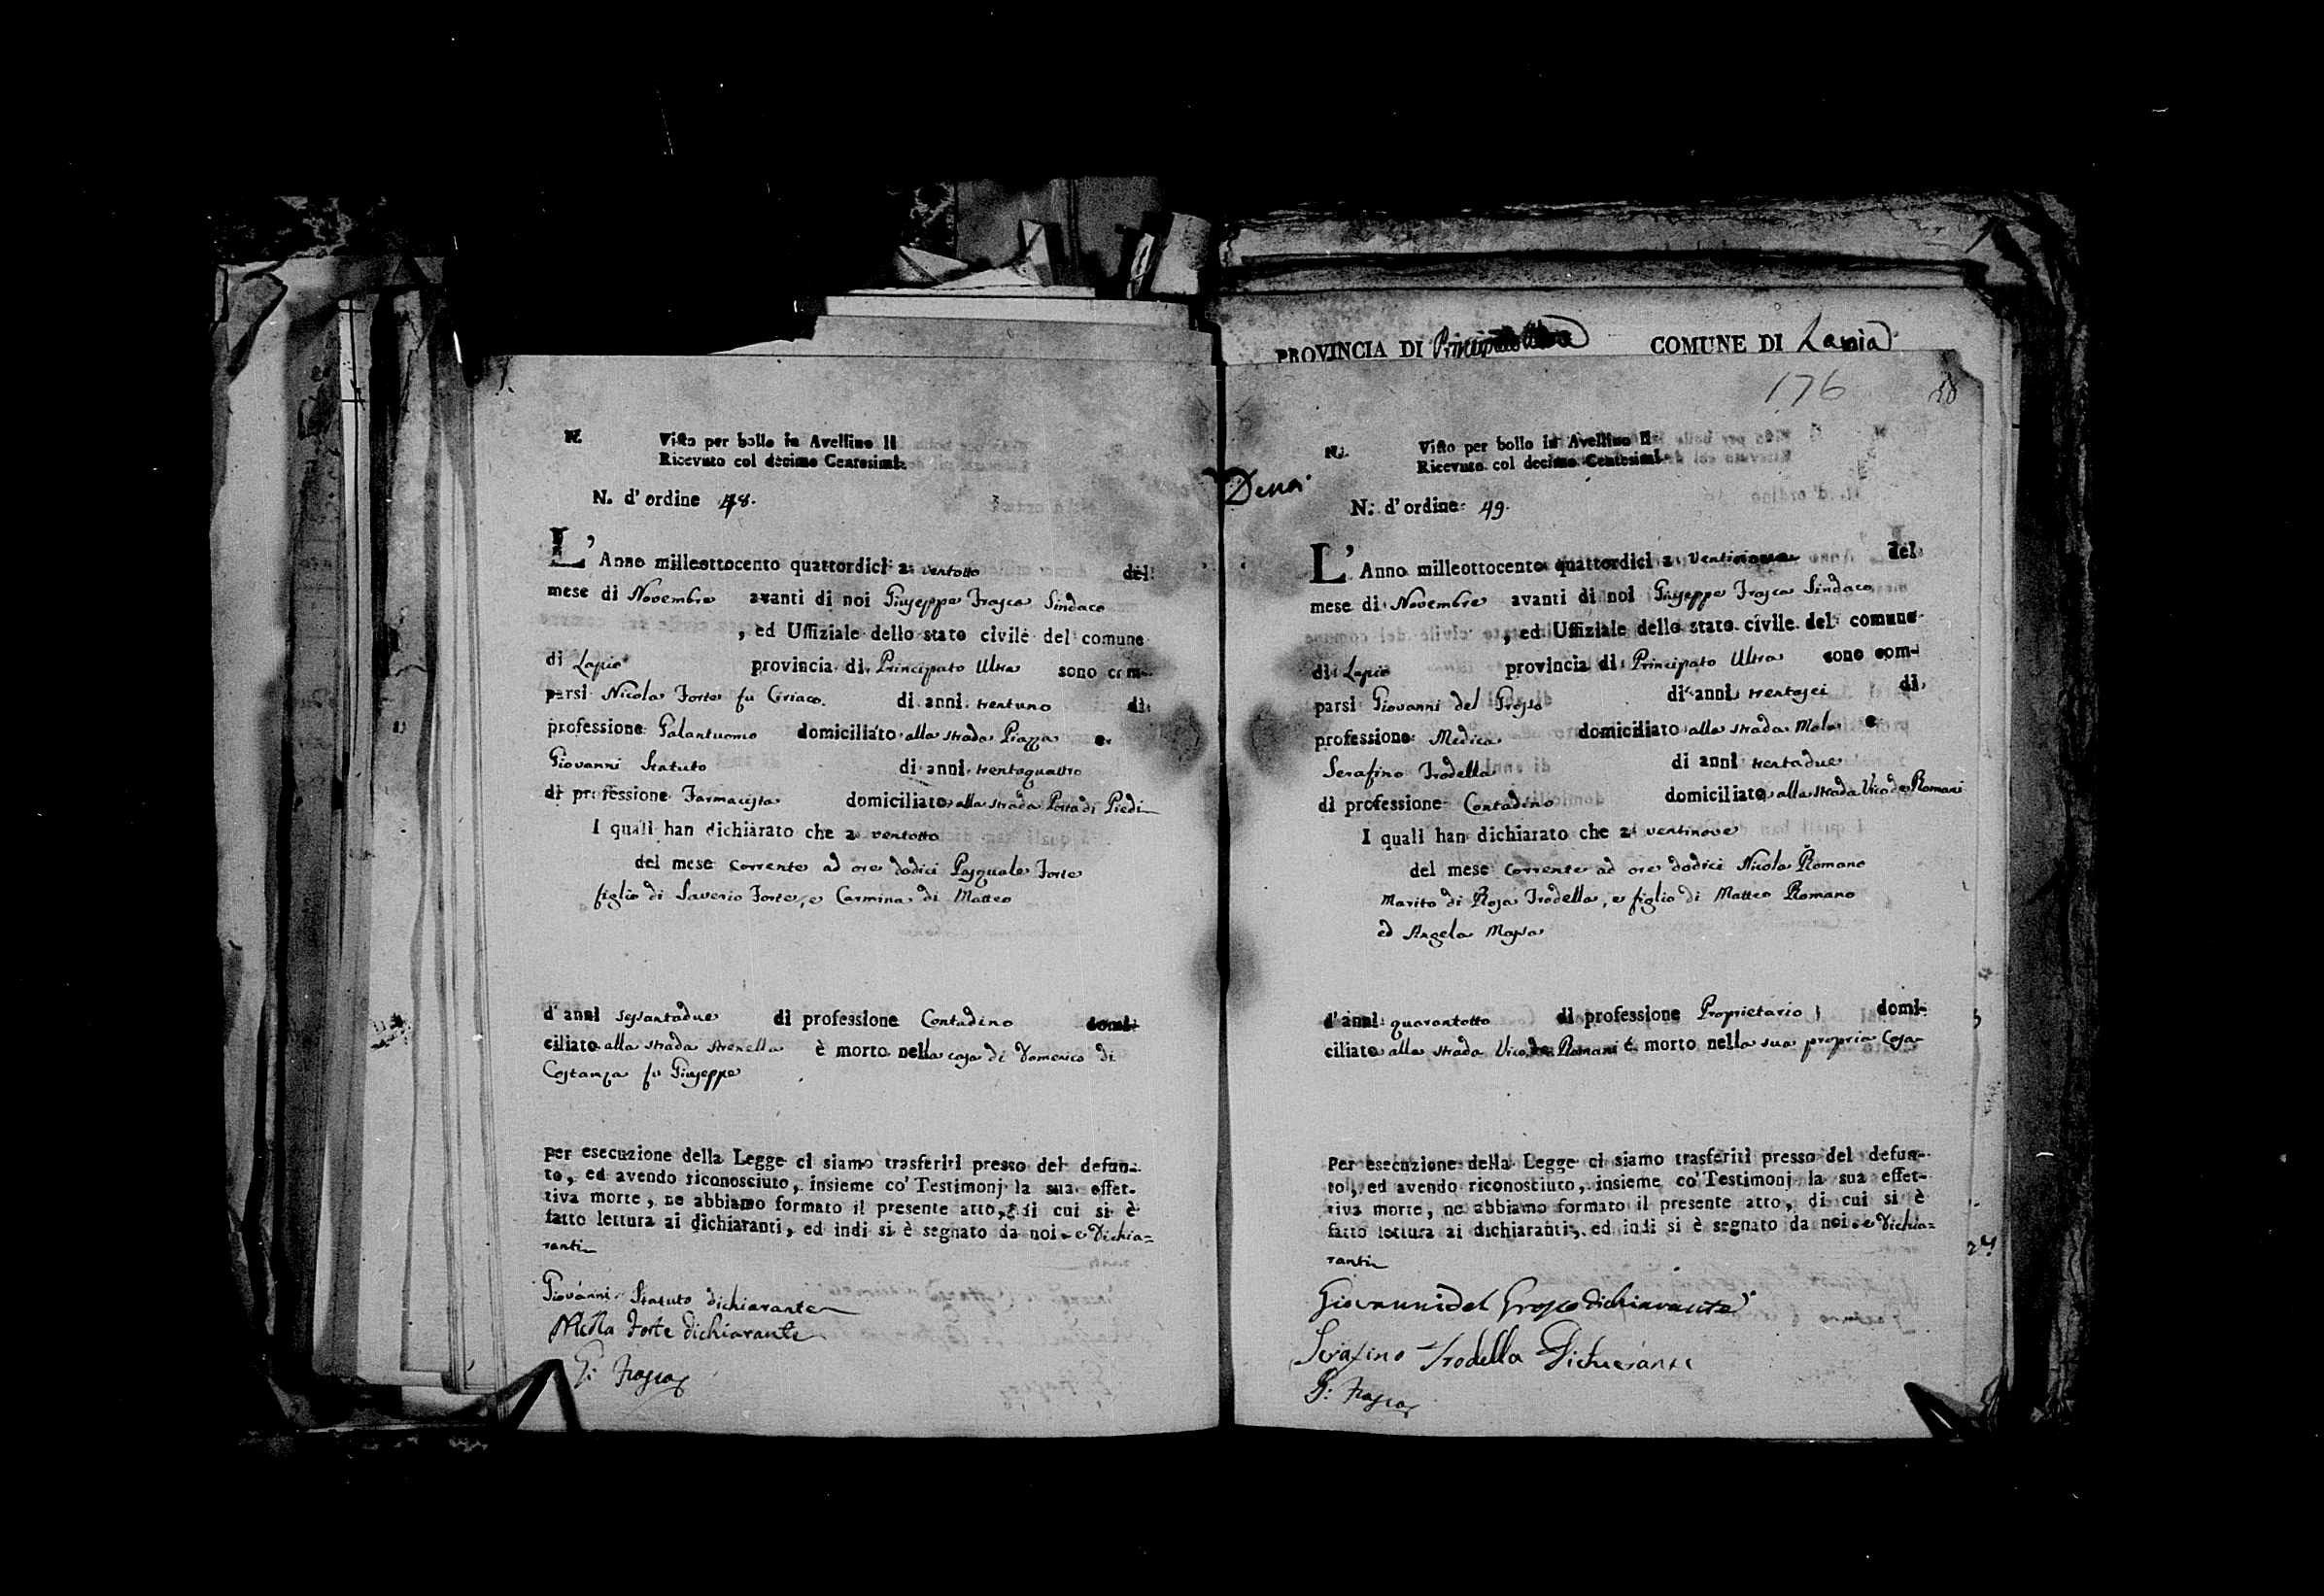 N. Visto per bollo in Avellino il
Ricevuto col decimo Centesimi
N. d'ordine 48.
L'Anno milleottocento quattordici a ventotto del
mese di Novembre avanti di noi Giuseppe Frasca Sindaco
, ed Uffiziale dello stato civile del comune
di Lapio provincia di Principato Ultra sono com-
parsi Nicola Forte fu Ciriaco di anni trentuno di
professione Galantuomo domiciliato alla strada Piazza e
Giovanni Statuto di anni trentaquattro
di professione Farmacista domiciliato alla strada Porta di Piedi
I quali han dichiarato che a ventotto
del mese corrente ad ore dodici Pasquale Forte
figlio di Saverio Forte, e Carmina di Matteo
d'anni sessantadue di professione Contadino domi-
ciliato alla strada è morto nella casa di Domenico di
Costanza fu Giuseppe
Per esecuzione della Legge ci siamo trasferiti presso del defun-
to, ed avendo riconosciuto, insieme co' Testimonj la sua effet-
tiva morte, ne abbiamo formato il presente atto, di cui si è
fatto lettura ai dichiaranti, ed indi si è segnato da noi e dichia=
ranti
Giovanni Statuto dichiarante
Forte dichiarante
G: Frasca
PROVINCIA DI COMUNE DI Lapio
176
58
N. Visto per bollo in Avellino il
Ricevuto col decimo Centesimi
N. d'ordine 49.
L'Anno milleottocento quattordici a ventinove del
mese di Novembre avanti di noi Giuseppe Frasca Sindaco
, ed Uffiziale dello stato civile del comune
di Lapio provincia di Principato Ultra sono com-
parsi Giovanni del Grosso di anni trentasei di
professione Medico domiciliato alla strada Mola e
Serafino Trodella di anni trentadue
di professione Contadino domiciliato alla strada Vico de Romani
I quali han dichiarato che a ventinove
del mese corrente ad ore dodici Nicola Romano
Marito di Rosa Trodella, e figlio di Matteo Romano
ed Angela Massa
d'anni quarantotto di professione Proprietario domi-
ciliato alla strada Vico de Romani è morto nella sua propria Casa
Per esecuzione della Legge ci siamo trasferiti presso del defun-
to, ed avendo riconosciuto, insieme co' Testimonj la sua effet-
tiva morte, ne abbiamo formato il presente atto, di cui si è
fatto lettura ai dichiaranti, ed indi si è segnato da noi e dichia=
ranti
Giovanni del Grosso dichiarante
Serafino Trodella Dichiarante
G: Frasca